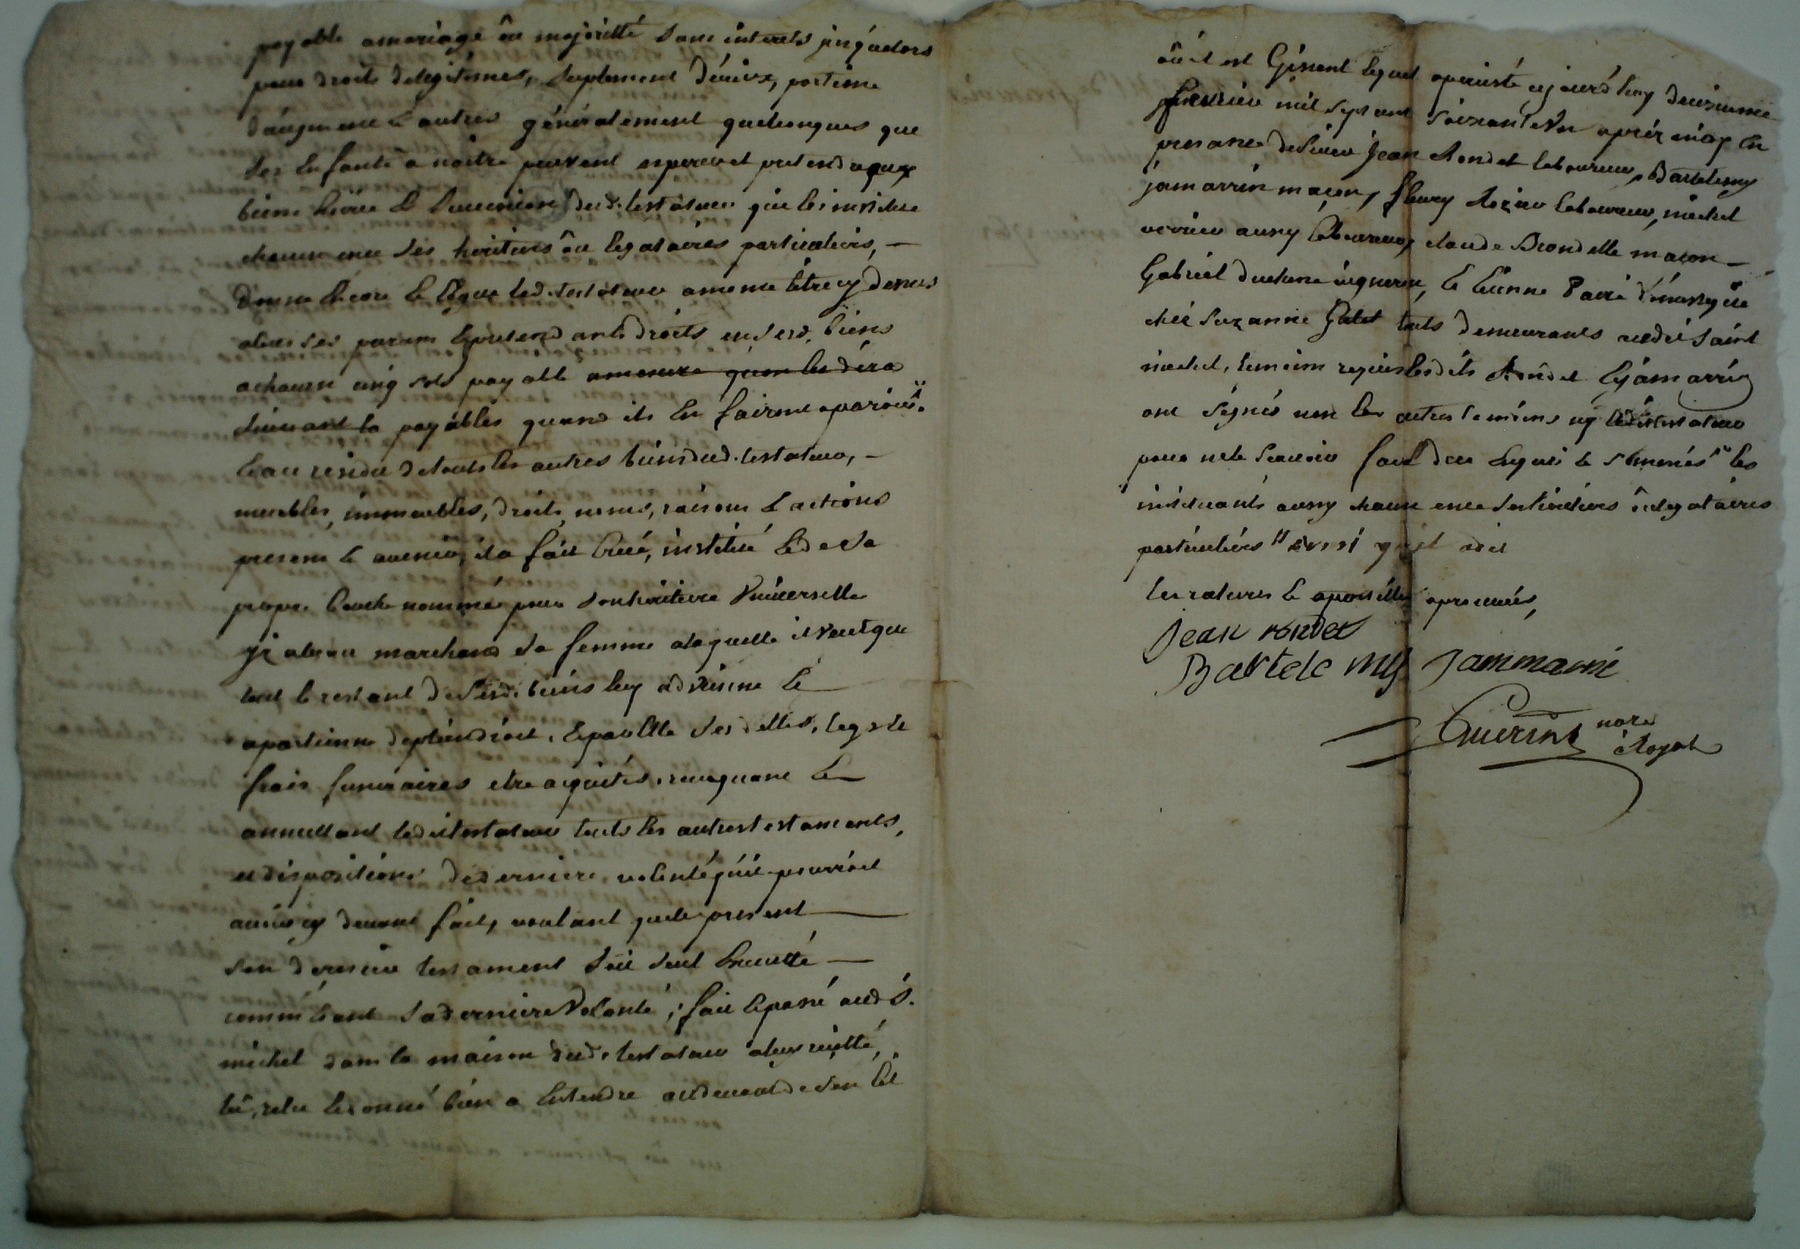 payable a mariage ôu majoritté sans interests jusqu'alors
pour droits de legitimes, suplement d'iceux, portion
d'augment & autres généralement quelconques que
ses Enfants a naitre peuvent esperer et pretendre aux
biens hoirie & succession dud. testateur qu'il institue
chacun ses hoiritiers ôu legataires particuliers, —
donne Encore & Legue led. testateur a meme titre cy dessus
a tous ses parans & pretendants droits en sesd. biens
a chacun cinq sols payable a mesure qu'on les dira
payables quand ils En fairont aparoir "
Et au residu de touts les autres biens dud. testateur, —
meubles, immeubles, droits, noms, raisons & actions
presens & avenir, il a fait Créé, institué & de sa
propre bouche nommé pour son hoiritiere Universelle
marchand sa femme a laquelle il veut que
tout le restant de sesd. biens luy advienne &
apartienne de plein droit, & par Elle ses dettes, legs &
frais funeraires etre aquités, revoquant &
annullant ledit testateur touts les autres testaments,
et dispositions de derniere volonté qu'il pourroit
avoir cy devant fait, voulant que le present —
son dernier testament soit seul Executté —
comm' Etant sa derniere Volonté; fait & passé aud. S.
michel dans la maison dud. testateur a luy recitté,
lû, relu & donné bien a Entendre au devant de son Lit
ôu il est Gisent lequel aujourd'huy deuxieme
fevrier mil sept cent soixante Un après midy En
presance de sieur Jean Rondet laboureur, Bartelemy
jamarrin maçon, fleury Rozier laboureur, michel
verrier aussy laboureur, claude Blondelle maçon —
Gabriel duchene vigneron, & Etienne
chéz Suzanne Galet touts demeurants audit saint
michel, temoins requis lesdits Rondet & jamarrin
ont signés non les autres temoins ny ledit testateur
pour ne le scavoir faire de ce Enquis & sommés " les
instituants aussy chacun ses hoiritiers ôu legataires
particuliers "
les ratures & apostilles aprouvées,
Jean rondet
Bartele my Jammarin
Guerin nore
Royal